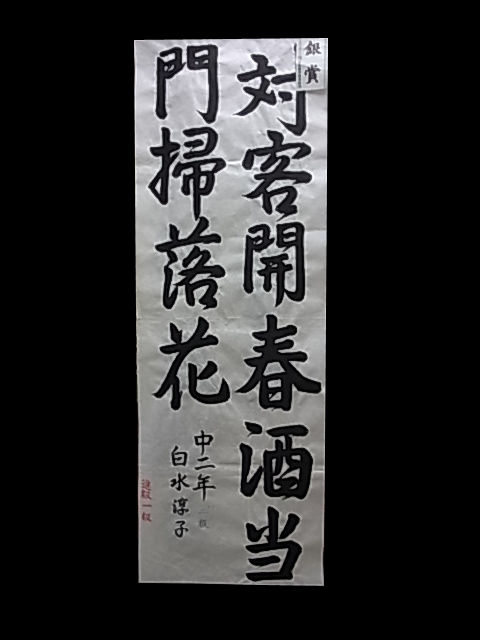 銀賞
対客開春酒当
門掃落花
中二年
白水淳子
進級一級